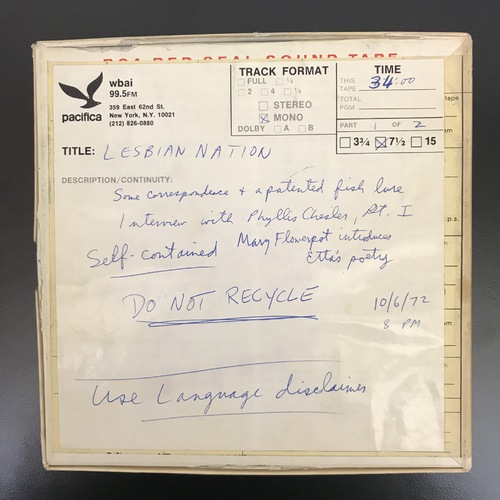 RCA RED SEAL SOUND TAPE
pacifica
wbai
99.5FM
359 East 62nd St.
New York, N.Y. 10021
(212) 826-0880
TRACK FORMAT
FULL ½
2 4 ¼
STEREO
MONO
DOLBY A B
TIME
THIS TAPE 34:00
TOTAL PGM
PART 1 OF 2
3¾ 7½ 15
TITLE: LESBIAN NATION
DESCRIPTION/CONTINUITY:
Some correspondence + a patented fish lure
Interview with Phyllis Chesler, Pt. I
Self-contained Mary Flowerpot introduces
Etta's poetry
DO NOT RECYCLE
10/6/72
8 PM
Use Language disclaimer
tape
p.s.